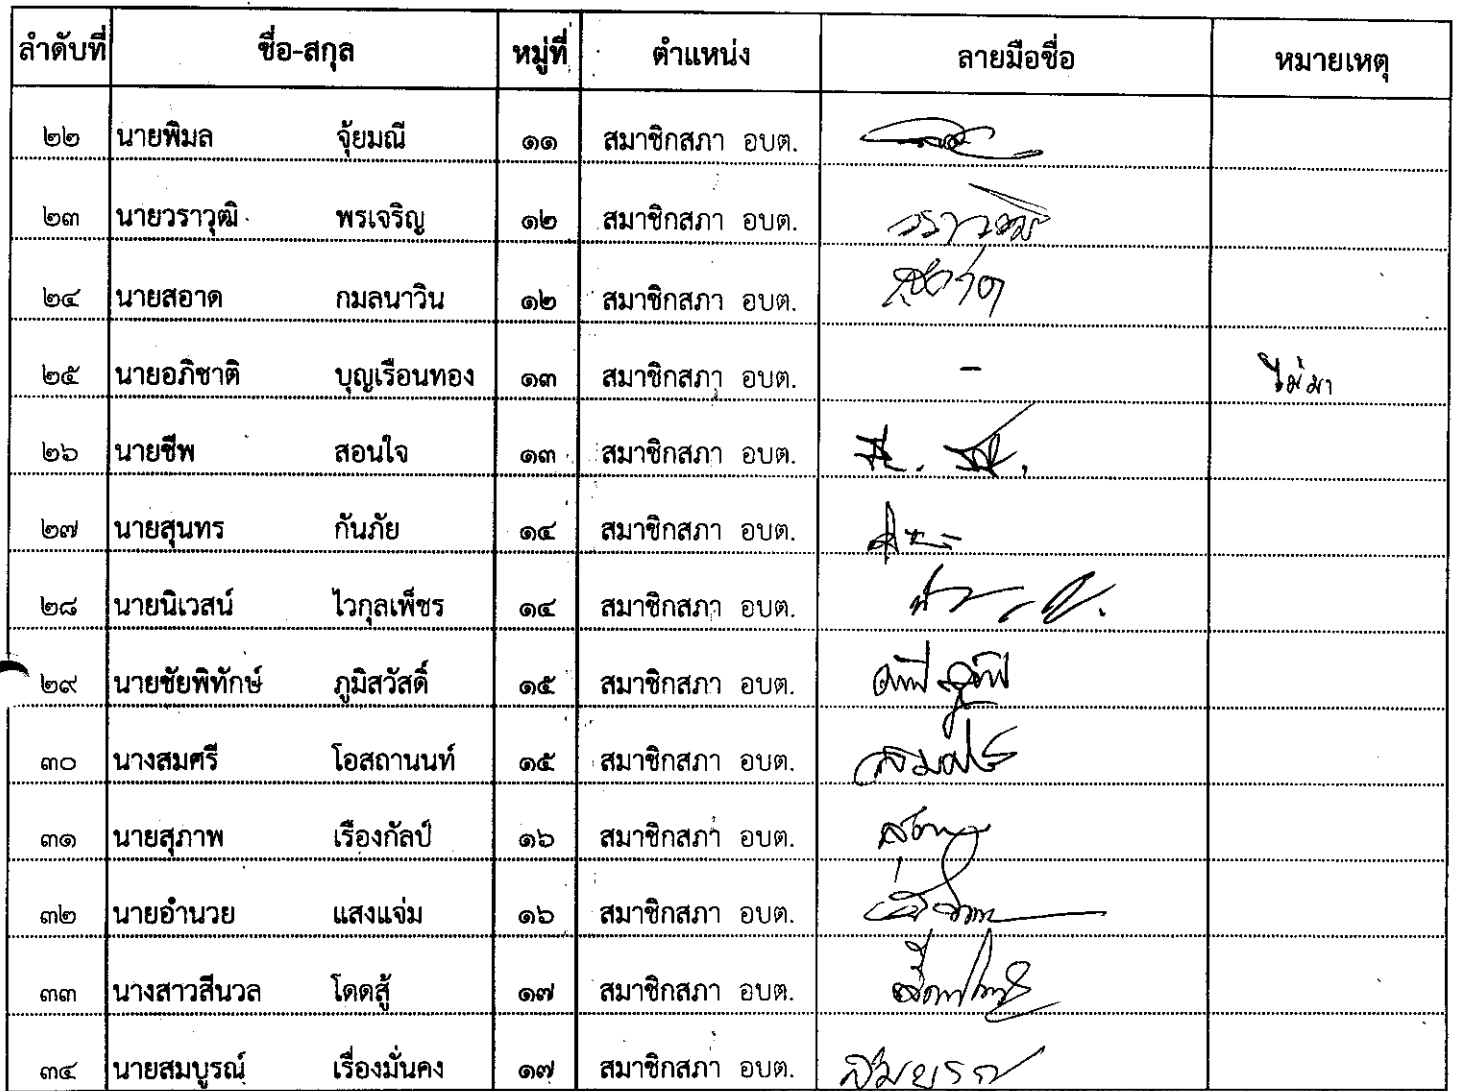 ลำดับที่ ชื่อ-สกุล หมู่ที่ ตำแหน่ง ลายมือชื่อ หมายเหตุ
๒๒ นายพิมล จุ้ยมณี ๑๑ สมาชิกสภา อบต.
๒๓ นายวราวุฒิ พรเจริญ ๑๒ สมาชิกสภา อบต. วราวุฒิ
๒๔ นายสอาด กมลนาวิน ๑๒ สมาชิกสภา อบต. สอาด
๒๕ นายอภิชาติ บุญเรือนทอง ๑๓ สมาชิกสภา อบต. - ไม่มา
๒๖ นายชีพ สอนใจ ๑๓ สมาชิกสภา อบต.
๒๗ นายสุนทร กันภัย ๑๔ สมาชิกสภา อบต.
๒๘ นายนิเวสน์ ไวกุลเพ็ชร ๑๔ สมาชิกสภา อบต.
๒๙ นายชัยพิทักษ์ ภูมิสวัสดิ์ ๑๕ สมาชิกสภา อบต.
๓๐ นางสมศรี โอสถานนท์ ๑๕ สมาชิกสภา อบต. สมศรี
๓๑ นายสุภาพ เรืองกัลป์ ๑๖ สมาชิกสภา อบต.
๓๒ นายอำนวย แสงแจ่ม ๑๖ สมาชิกสภา อบต.
๓๓ นางสาวสีนวล โดดสู้ ๑๗ สมาชิกสภา อบต.
๓๔ นายสมบูรณ์ เรื่องมั่นคง ๑๗ สมาชิกสภา อบต.